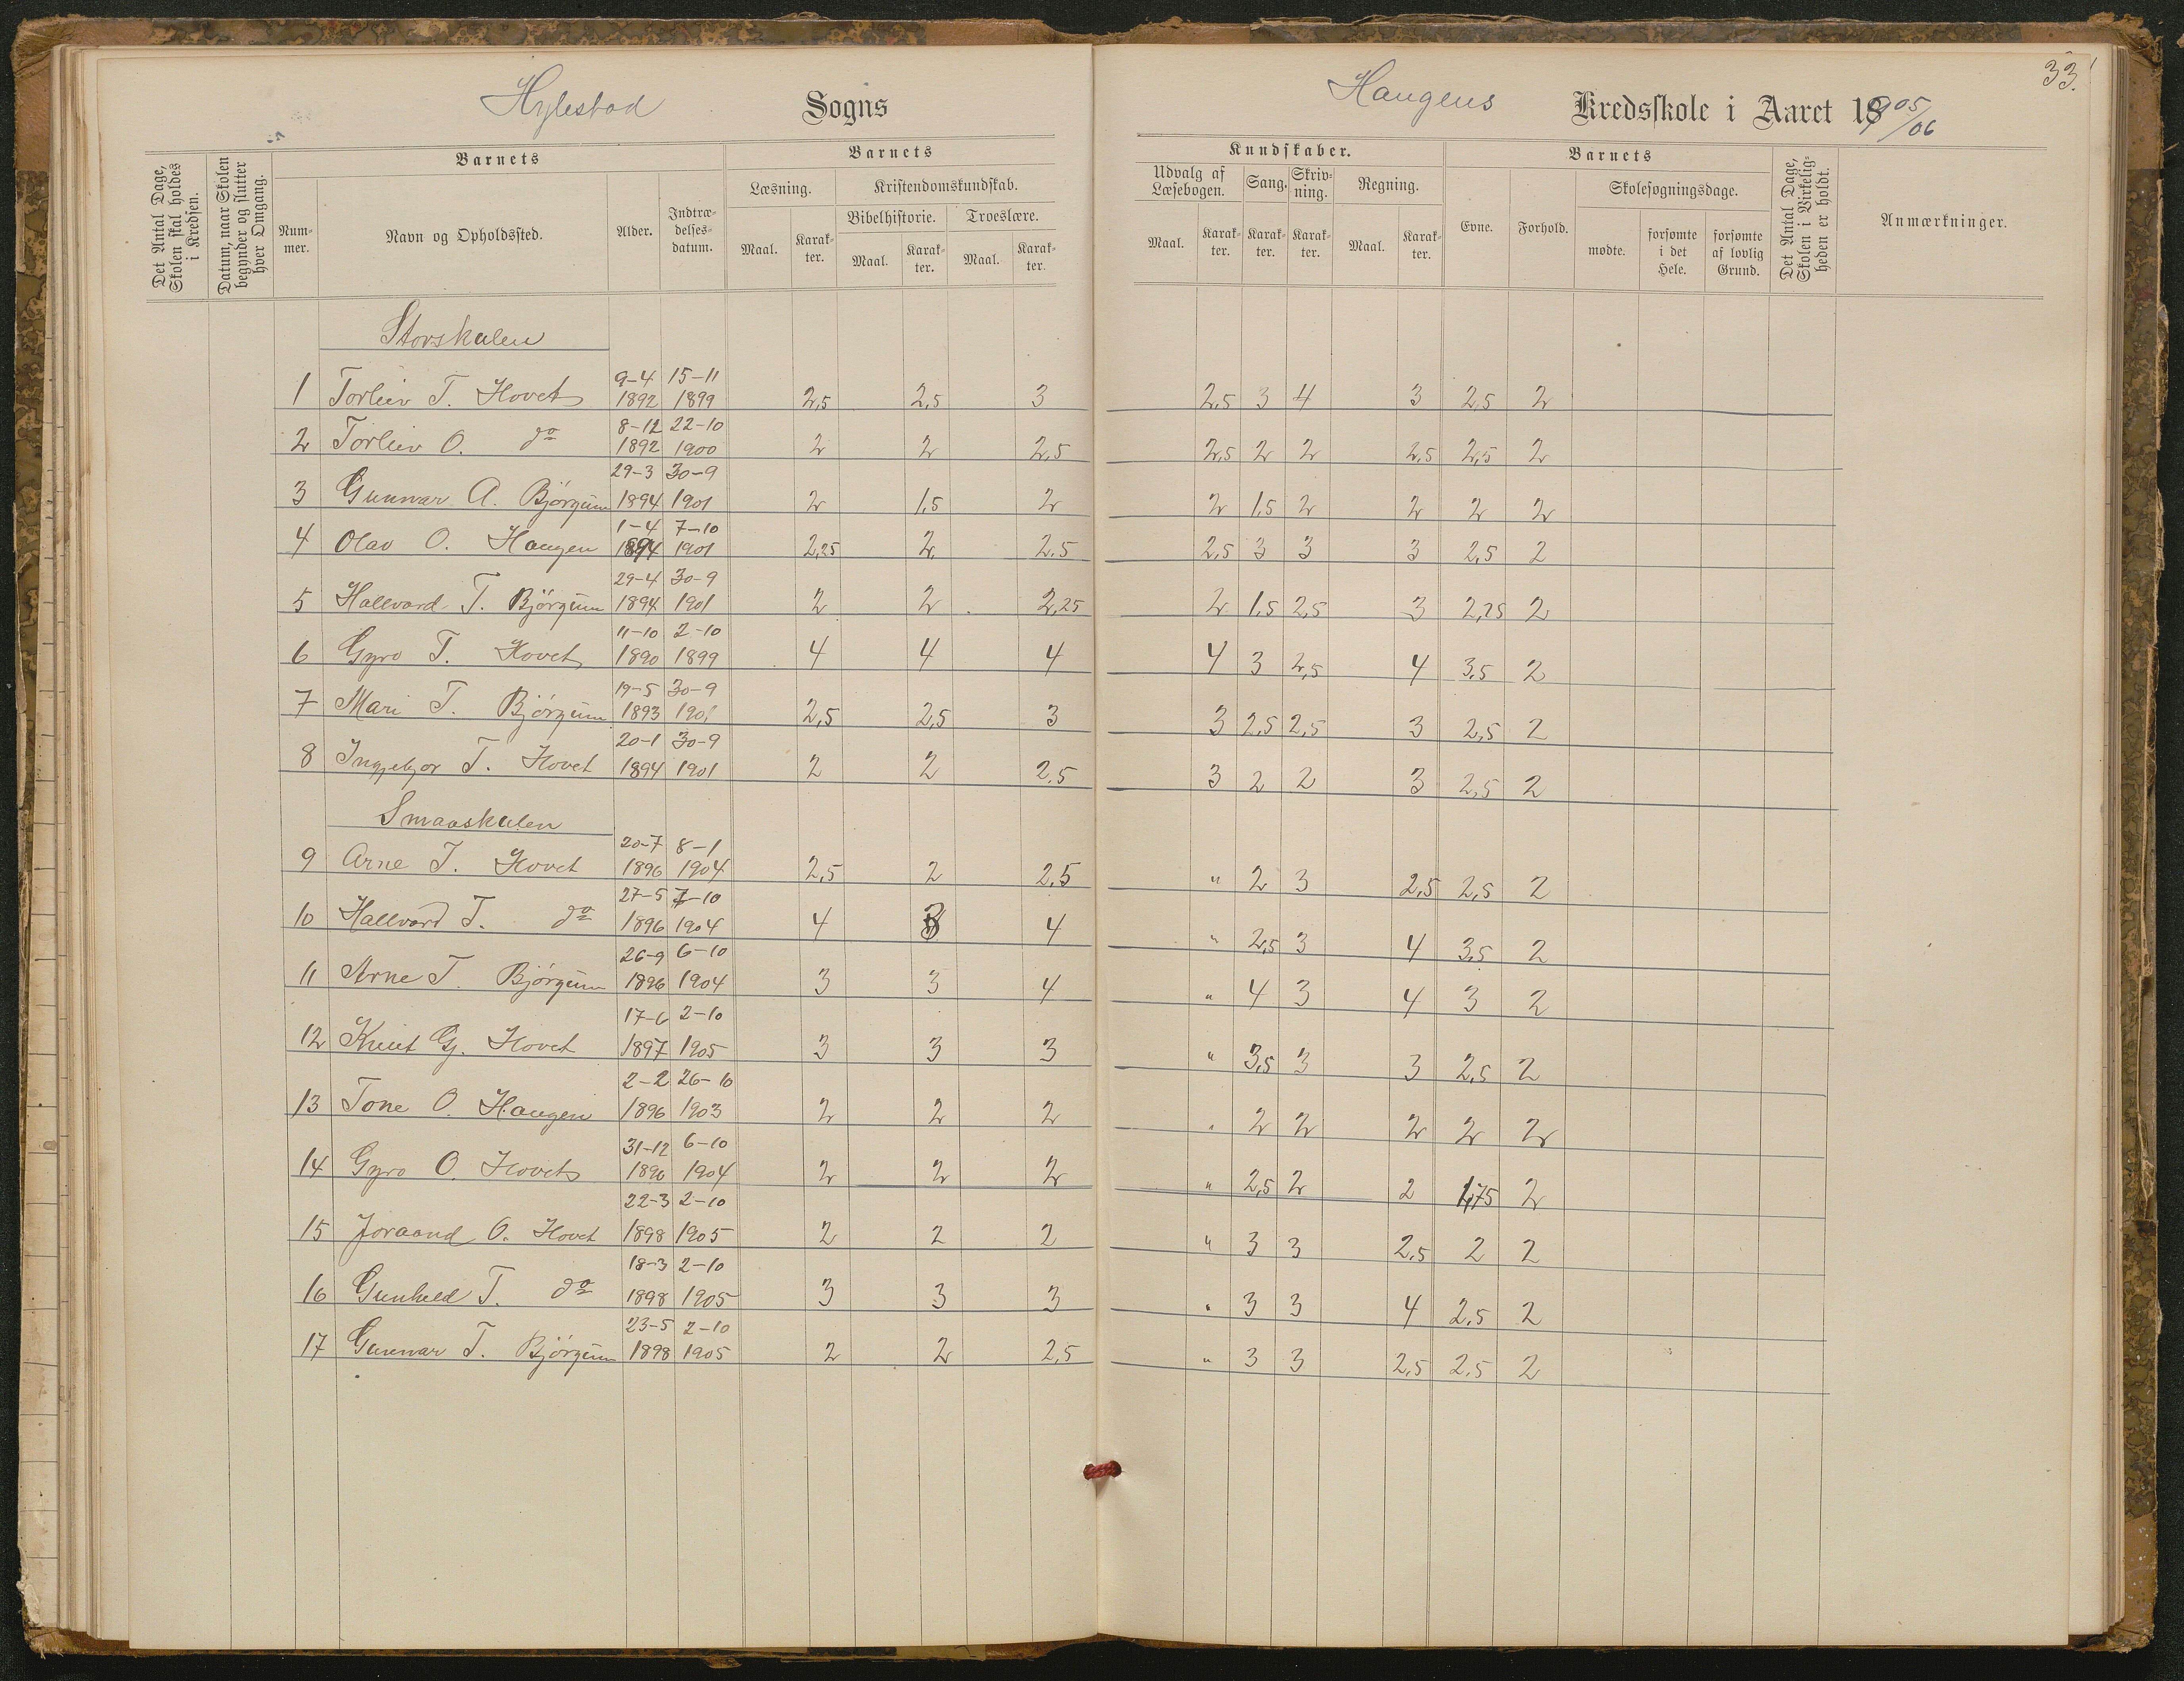 33.
Hylestad Sogns Haugens Kredsskole i Aaret 1905/06
Det Antal Dage, Skolen skal holdes i Kredsen.
Datum, naar Skolen begynder og slutter hver Omgang.
Barnets
Nummer.
Navn og Opholdssted.
Alder.
Indtrædelsesdatum.
Barnets
Læsning.
Maal.
Karakter.
Kristendomskundskab.
Bibelhistorie.
Maal.
Karakter.
Troeslære.
Maal.
Karakter.
Kundskaber.
Udvalg af Læsebogen.
Maal.
Karakter.
Sang.
Karakter.
Skrivning.
Karakter.
Regning.
Maal.
Karakter.
Barnets
Evne.
Forhold.
Skolesøgningsdage.
mødte.
forsømte i det Hele.
forsømte af lovlig Grund.
Det Antal Dage, Skolen i Virkeligheden er holdt.
Anmærkninger.
Storskulen
1 Torleiv T. Hovet 9-4 1892 15-11 1899 2,5 2,5 3 2,5 3 4 3 2,5 2
2 Torleiv O. do 8-12 1892 22-10 1900 2 2 2,5 2,5 2 2 2,5 2,5 2
3 Gunnar A. Bjørgum 29-3 1894 30-9 1901 2 1,5 2 2 1,5 2 2 2 2
4 Olav O. Haugen 1-4 1894 7-10 1901 2,25 2 2,5 2,5 3 3 3 2,5 2
5 Hallvard T. Bjørgum 29-4 1894 30-9 1901 2 2 2,25 2 1,5 2,5 3 2,25 2
6 Gyro T. Hovet 11-10 1890 2-10 1899 4 4 4 4 3 2,5 4 3,5 2
7 Mari T. Bjørgum 19-5 1893 30-9 1901 2,5 2,5 3 3 2,5 2,5 3 2,5 2
8 Ingjebjor T. Hovet 20-1 1894 30-9 1901 2 2 2,5 3 2 2 3 2,5 2
Smaaskulen
9 Arne T. Hovet 20-7 1896 8-1 1904 2,5 2 2,5 " 2 3 2,5 2,5 2
10 Hallvard T. do 27-5 1896 7-10 1904 4 3 4 " 2,5 3 4 3,5 2
11 Arne T. Bjørgum 26-9 1896 6-10 1904 3 3 4 " 4 3 4 3 2
12 Knut G. Hovet 17-6 1897 2-10 1905 3 3 3 " 3,5 3 3 2,5 2
13 Tone O. Haugen 2-2 1896 26-10 1903 2 2 2 " 2 2 2 2 2
14 Gyro O. Hovet 31-12 1896 6-10 1904 2 2 2 " 2,5 2 2 1,75 2
15 Joraand O. Hovet 22-3 1898 2-10 1905 2 2 2 " 3 3 2,5 2 2
16 Gunhild T. do 18-3 1898 2-10 1905 3 3 3 " 3 3 4 2,5 2
17 Gunnar T. Bjørgum 23-5 1898 2-10 1905 2 2 2,5 " 3 3 2,5 2,5 2